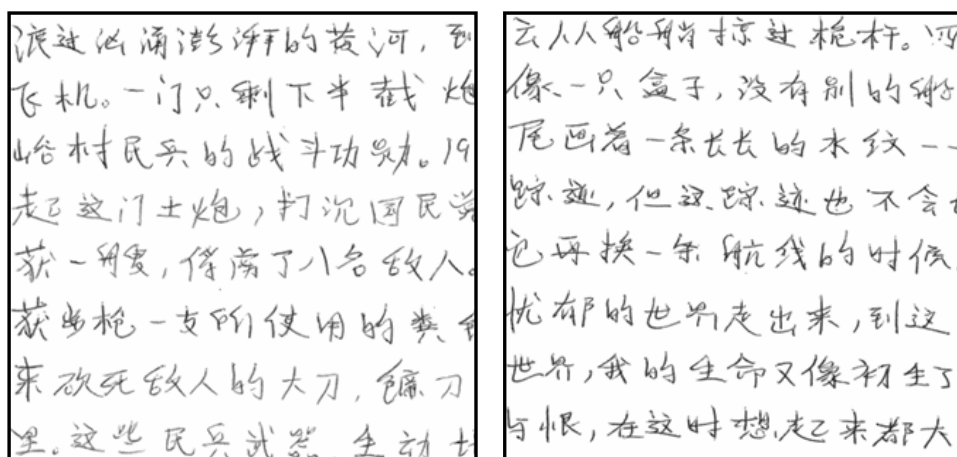 滚过汹涌澎湃的黄河，到
飞机。一门只剩下半截炮
峪村民兵的战斗功勋。19
起了这门土炮，打沉国民党
获一艘，俘虏了八名敌人。
获步枪一支所使用的粪
来砍死敌人的大刀，镰刀
里。这些民兵武器，生动
云从船艄掠过桅杆。河
像一只盒子，没有别的船
尾画着一条长长的水纹——
踪迹，但这踪迹也不会
它再换一条航线的时候
忧郁的世界走出来，到这
世界，我的生命又像初生了
与恨，在这时想起来都大